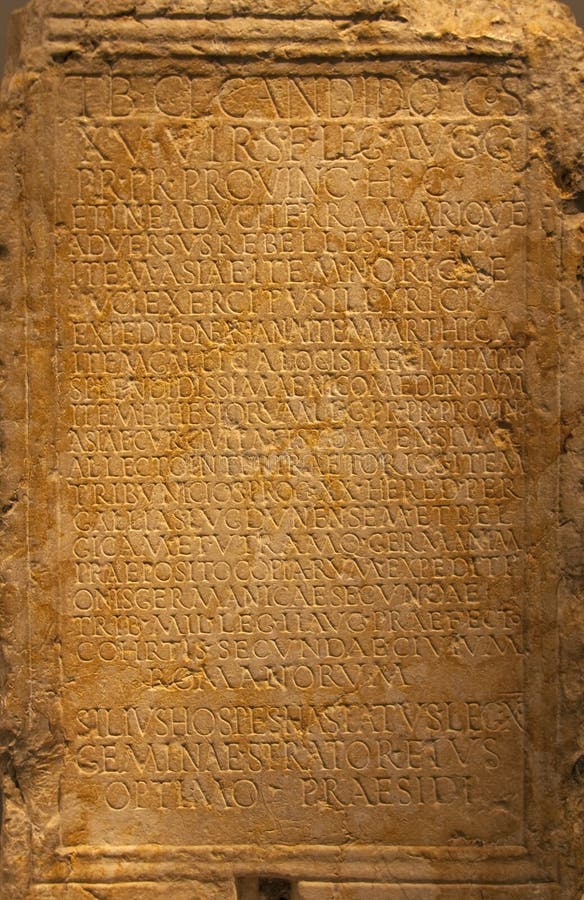 TIB·CL·CANDIDO·COS
XV·VIR·S·F·LEG·AVGG
PR·PR·PROVINC·H·C·
ET IN EA DVCI TERRA MARIQVE
ADVERSVS REBELLES·HH·PP·
ITEM ASIAE ITEM NORICAE
DVCI EXERCITVS ILLYRICI
EXPEDITIONE ASIANA ITEM PARTHICA
ITEM GALLICA LOGISTAE CIVITATIS
SPLENDIDISSIMAE NICOMEDENSIVM
ITEM EPHESIORVM LEG·PR·PR·PROVIN·
ASIAE CVR·CIVITATIS TEANENSIVM
ALLECTO INTER PRAETORIOS ITEM
TRIBVNICIOS PROC·XX·HERED PER
GALLIAS LVGDVNENSEM ET BEL
GICAM ET VTRAMQ·GERMANIAM
PRAEPOSITO COPIARVM EXPEDITI
ONIS GERMANICAE SECVNDAE
TRIB·MIL·LEG·II·AVG·PRAEFECTO
COHORTIS·SECVNDAE CIVIVM
ROMANORVM
SILIVS HOSPES HASTATVS LEG X
GEMINAE STRATOR EIVS
OPTIMO PRAESIDI